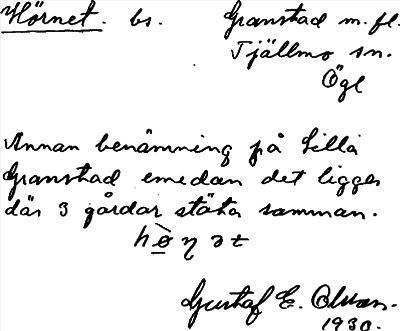 Hörnet. bs. Granstad m. fl.
Tjällmo sn.
Ögl
Annan benämning på Lilla
Granstad emedan det ligger
där 3 gårdar stöta samman.
Gustaf E. Olsson.
1930.